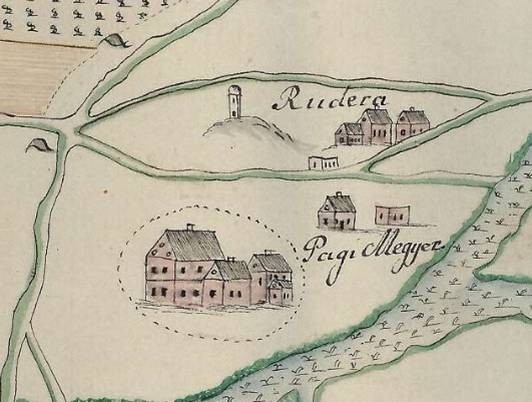 Rudera
Pagi Megyer